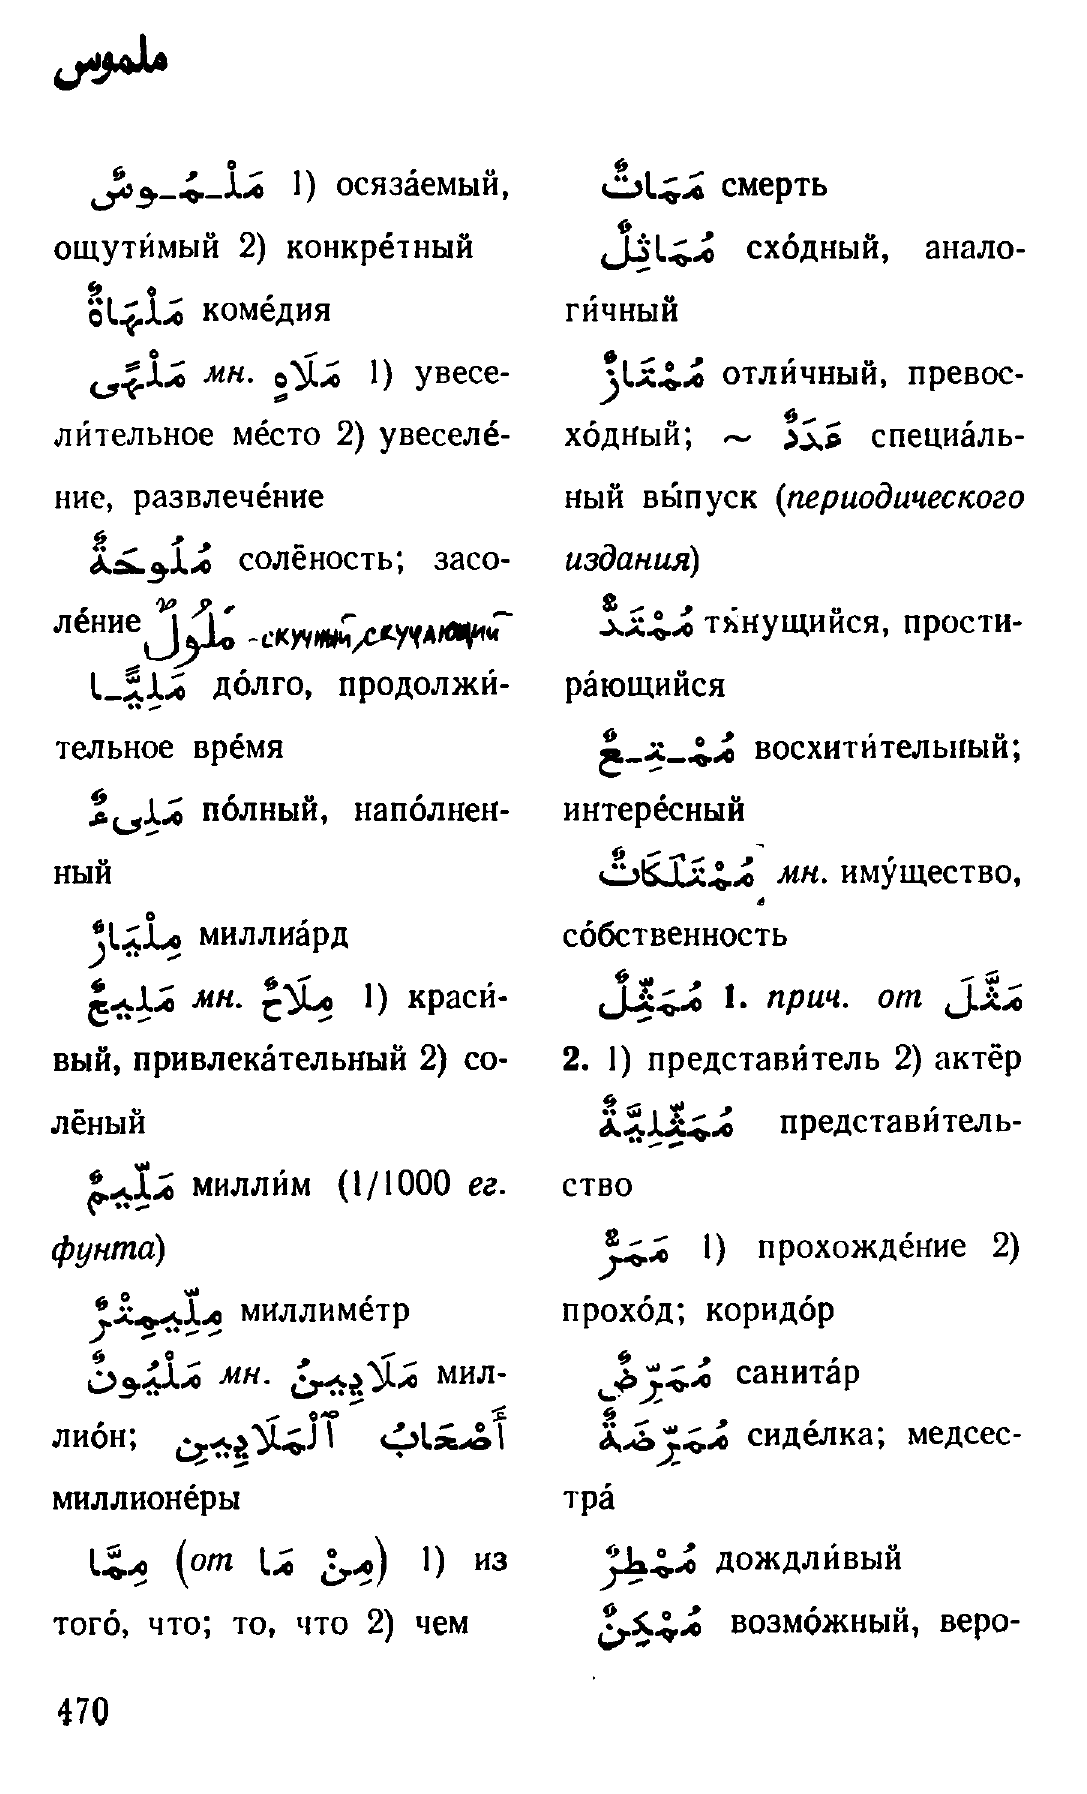 ملموس
مَلْـمُـوسٌ 1) осяза́емый,
ощути́мый 2) конкре́тный
مَلْهَاةٌ коме́дия
مَلْهًى мн. مَلَاهٍ 1) увесе-
ли́тельное ме́сто 2) увеселе́-
ние, развлече́ние
مُلُوحَةٌ солёность; засо-
ле́ние مَلُولٌ - скучный, скучающий
مَلِيًّـا до́лго, продолжи́-
тельное вре́мя
مَلِيءٌ по́лный, напо́лнен-
ный
مِلْيَارٌ миллиа́рд
مَلِيحٌ мн. مِلَاحٌ 1) краси́-
вый, привлека́тельный 2) со-
лёный
مَلِّيمٌ милли́м (1/1000 ег.
фунта)
مِلِّيمِتْرٌ миллиме́тр
مَلْيُونٌ мн. مَلَايِينُ мил-
лио́н; أَصْحَابُ ٱلْمَلَايِينِ
миллионе́ры
مِمَّا (от مِنْ مَا) 1) из
того́, что; то, что 2) чем
مَمَاتٌ смерть
مُمَاثِلٌ схо́дный, анало-
ги́чный
مُمْتَازٌ отли́чный, превос-
хо́дный; ~ عَدَدٌ специа́ль-
ный вы́пуск (периодического
издания)
مُمْتَدٌّ тя́нущийся, прости-
ра́ющийся
مُمْـتِـعٌ восхити́тельный;
интере́сный
مُمْتَلَكَاتٌ мн. иму́щество,
со́бственность
مُمَثِّلٌ 1. прич. от مَثَّلَ
2. 1) представи́тель 2) актёр
مُمَثِّلِيَّةٌ представи́тель-
ство
مَمَرٌّ 1) прохожде́ние 2)
прохо́д; коридо́р
مُمَرِّضٌ санита́р
مُمَرِّضَةٌ сиде́лка; медсес-
тра́
مُمْطِرٌ дождли́вый
مُمْكِنٌ возмо́жный, веро-
470